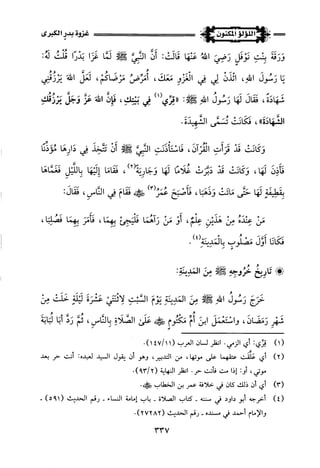 اللؤلؤ المكنون
غزوة بدر الكبرى
وَرَقَةَ بِنْتِ نَوْفَلٍ رَضِيَ اللهُ عَنْهَا قَالَتْ: أَنَّ النَّبِيَّ ﷺ لَمَّا غَزَا بَدْرًا قُلْتُ لَهُ:
يَا رَسُولَ اللهِ، ائْذَنْ لِي فِي الْغَزْوِ مَعَكَ، أُمَرِّضُ مَرْضَاكُمْ، لَعَلَّ اللهَ يَرْزُقُنِي
شَهَادَةً، فَقَالَ لَهَا رَسُولُ اللهِ ﷺ: «قِرِّي(١) فِي بَيْتِكِ، فَإِنَّ اللهَ عَزَّ وَجَلَّ يَرْزُقُكِ
الشَّهَادَةَ»، فَكَانَتْ تُسَمَّى الشَّهِيدَةَ.
وَكَانَتْ قَدْ قَرَأَتِ الْقُرْآنَ، فَاسْتَأْذَنَتِ النَّبِيَّ ﷺ أَنْ تَتَّخِذَ فِي دَارِهَا مُؤَذِّنًا
فَأَذِنَ لَهَا، وَكَانَتْ قَدْ دَبَّرَتْ غُلَامًا لَهَا وَجَارِيَةً(٢)، فَقَامَا إِلَيْهَا بِاللَّيْلِ فَغَمَّاهَا
بِقَطِيفَةٍ لَهَا حَتَّى مَاتَتْ وَذَهَبَا، فَأَصْبَحَ عُمَرُ(٣) ﷺ فَقَامَ فِي النَّاسِ، فَقَالَ:
مَنْ عِنْدَهُ مِنْ هَذَيْنِ عِلْمٌ، أَوْ مَنْ رَآهُمَا فَلْيَجِئْ بِهِمَا، فَأَمَرَ بِهِمَا فَصُلِبَا،
فَكَانَا أَوَّلَ مَصْلُوبٍ بِالْمَدِينَةِ(٤).
تَارِيخُ خُرُوجِهِ ﷺ مِنَ الْمَدِينَةِ:
خَرَجَ رَسُولُ اللهِ ﷺ مِنَ الْمَدِينَةِ يَوْمَ السَّبْتِ لِاثْنَتَيْ عَشْرَةَ لَيْلَةٍ خَلَتْ مِنْ
شَهْرِ رَمَضَانَ، وَاسْتَعْمَلَ ابْنَ أُمِّ مَكْتُومٍ ﷺ عَلَى الصَّلَاةِ بِالنَّاسِ، ثُمَّ رَدَّ أَبَا لُبَابَةَ
(١) قِرِّي: أي الزمي. انظر لسان العرب (١٤٧/١١).
(٢) أي علَّقت عتقهما على موتها، من التدبير، وهو أن يقول السيد لعبده: أنت حر بعد
موتي، أو: إذا مت فأنت حر. انظر النهاية (٩٣/٢).
(٣) أي أن ذلك كان في خلافة عمر بن الخطاب ﷺ.
(٤) أخرجه أبو داود في سننه - كتاب الصلاة - باب إمامة النساء - رقم الحديث (٥٩١) -
والإمام أحمد في مسنده - رقم الحديث (٢٧٢٨٢).
٣٣٧